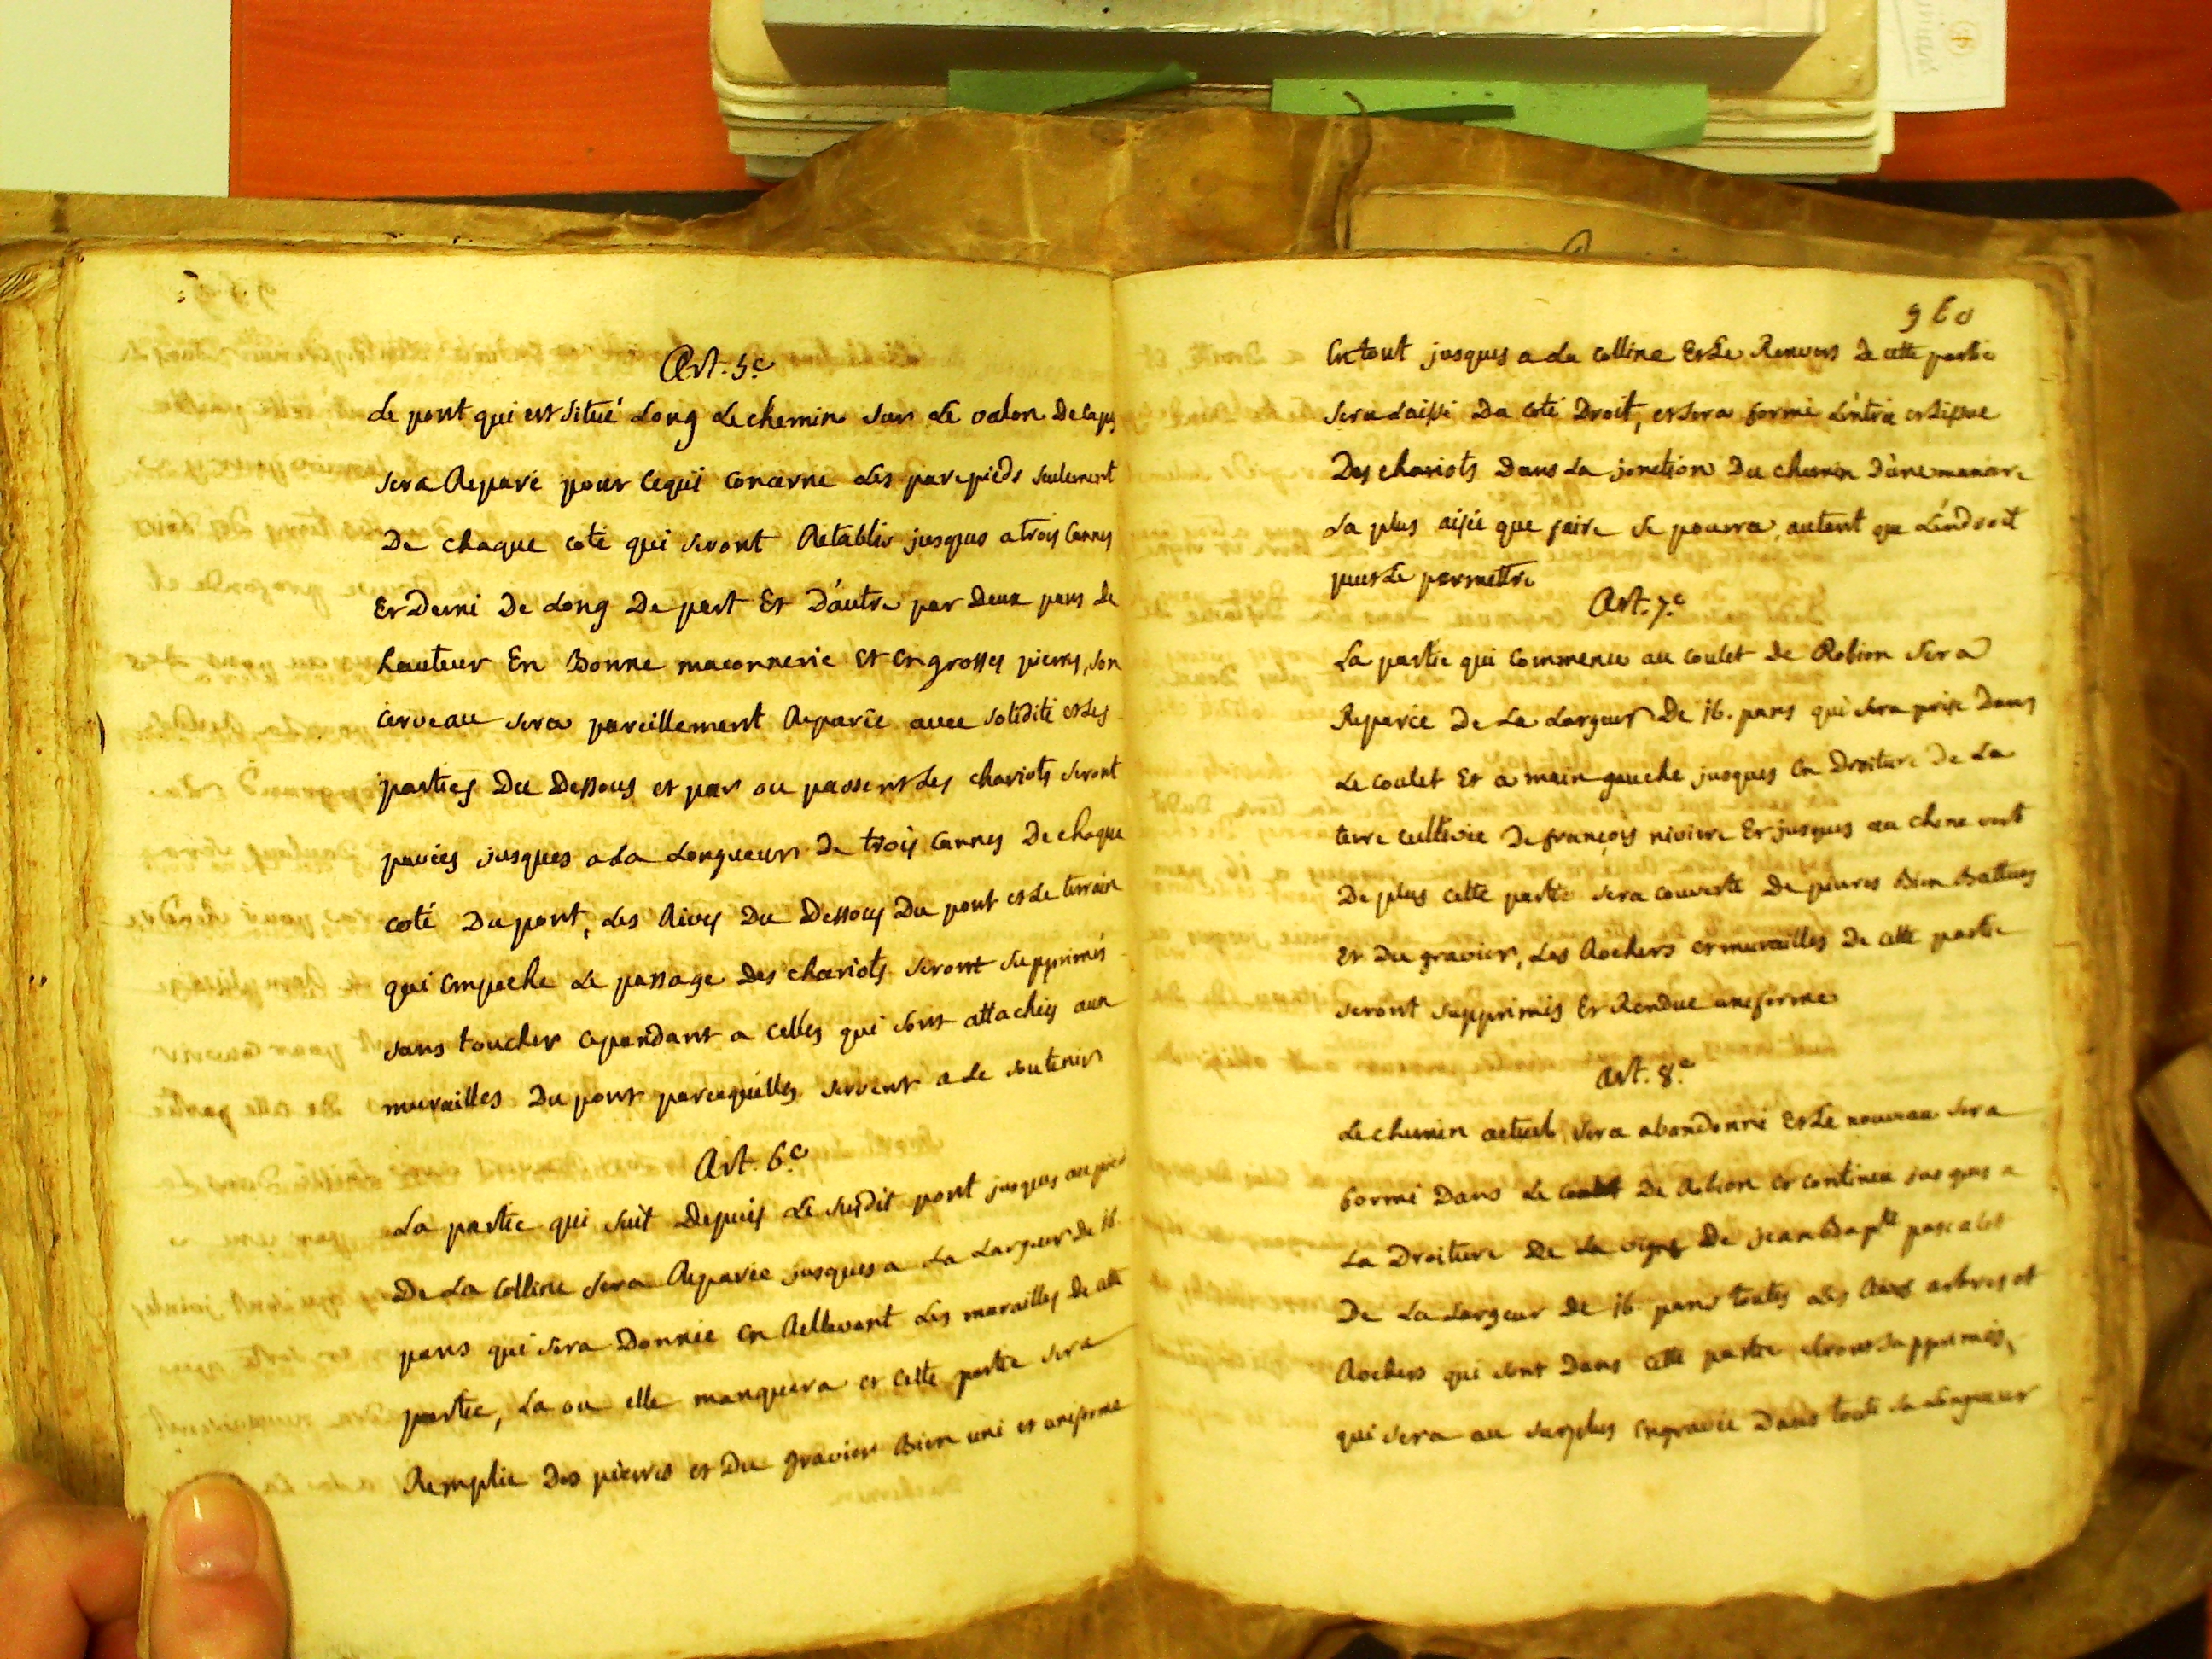 Art. 5.e
Le pont qui est situé Long Le chemin sur Le valon De
sera Reparé pour cequi concerne Les parepieds seulement
De chaque coté qui seront Retablis jusques a trois cannes
Et Demi De Long De part Et D'autre par Deux pans de
hauteur En Bonne maconnerie Et en grosses pierres, son
cerveau sera pareillement Reparée avec solidité et Les
parties Du Dessous et par ou passent Les chariots seront
pavées jusques a La Longueur De trois cannes De chaque
coté Du pont, Les Rives Du Dessous Du pont et Le terrain
qui empeche Le passage Des chariots seront supprimés
sans toucher cependant a celles qui sont attachées aux
murailles Du pont parcequ'elles servent a Le soutenir
Art. 6.e
La partie qui suit Depuis Le susdit pont jusques au pied
De La Colline sera Reparée jusques a La Largeur de 16.
pans qui sera Donnée en Rellevant Les murailles de cette
partie, La ou elle manquera et cette partie sera
Remplie Des pierres et Du gravier Bien uni et uniforme
960
En tout jusques a La colline Et Le Renvers De cette partie
sera Laissé Du coté Droit, et sera formé L'entrée et Lissue
Des chariots Dans La jonction Du chemin D'une maniere
La plus aisée que faire se pourra, autant que L'endroit
peut Le permettre
Art. 7.e
La partie qui commence au coulet De Robion sera
Reparée De La Largeur De 16. pans qui sera prise Dans
Le coulet Et a main gauche jusques en Droiture De La
terre cultivée De françois riviere Et jusques au chene vert
De plus cette partie sera couverte De pierres Bien Battues
Et Du gravier, Les Rochers et murailles De cette partie
seront supprimés Et Rendue uniforme
Art. 8.e
Le chemin actuel sera abandonné Et Le nouveau sera
formé Dans Le coulet De Robion et continué jusques a
La Droiture De La vigne De jean Bapte pascalet
De La Largeur De 16. pans toutes Les Rives arbres et
Rochers qui sont Dans cette partie seront supprimés,
qui sera au surplus engravée Dans toute sa Longueur